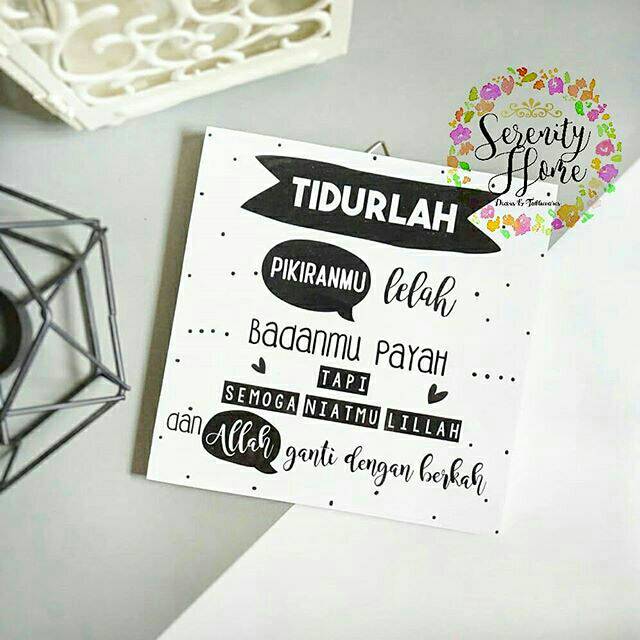 Serenity
Home
Decors & Tablewares
TIDURLAH
PIKIRANMU lelah
BADANMU PAYAH
TAPI
SEMOGA NIATMU LILLAH
dan Allah ganti dengan berkah